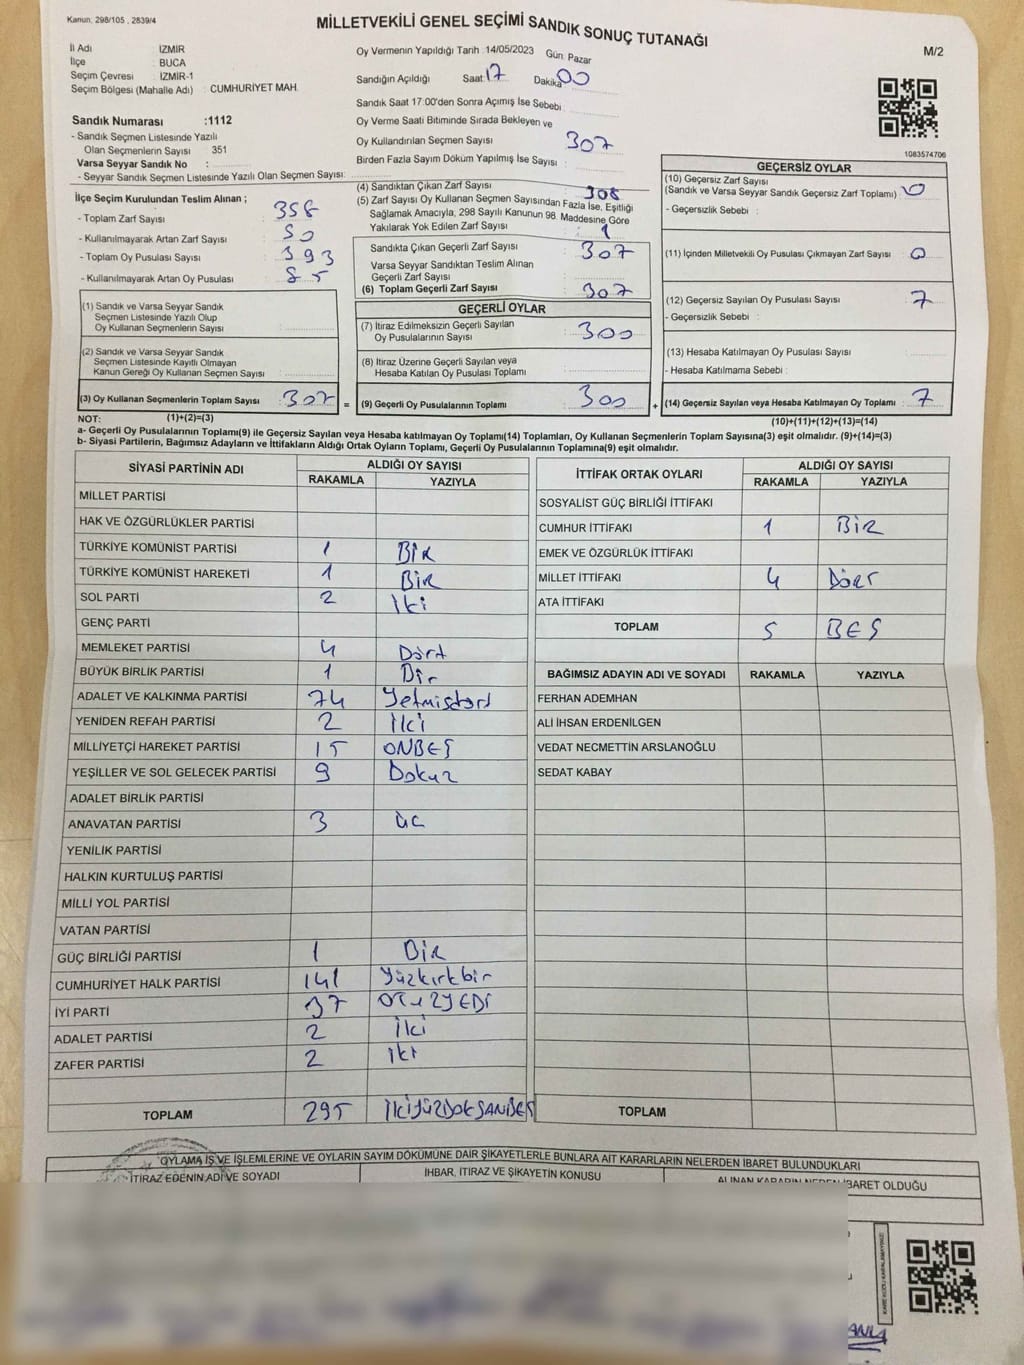 Kanun, 298/105 , 2839/4
MİLLETVEKİLİ GENEL SEÇİMİ SANDIK SONUÇ TUTANAĞI
M/2
İl Adı : İZMİR
İlçe : BUCA
Seçim Çevresi : İZMİR-1
Seçim Bölgesi (Mahalle Adı) : CUMHURİYET MAH.
Sandık Numarası :1112
- Sandık Seçmen Listesinde Yazılı
Olan Seçmenlerin Sayısı 351
Varsa Seyyar Sandık No :
- Seyyar Sandık Seçmen Listesinde Yazılı Olan Seçmen Sayısı:
Oy Vermenin Yapıldığı Tarih :14/05/2023 Gün: Pazar
Sandığın Açıldığı Saat: 17 Dakika: 00
Sandık Saat 17:00'den Sonra Açımış İse Sebebi :
Oy Verme Saati Bitiminde Sırada Bekleyen ve
Oy Kullandırılan Seçmen Sayısı : 307
Birden Fazla Sayım Döküm Yapılmış İse Sayısı :
1083574706
İlçe Seçim Kurulundan Teslim Alınan ;
- Toplam Zarf Sayısı : 358
- Kullanılmayarak Artan Zarf Sayısı : 50
- Toplam Oy Pusulası Sayısı : 393
- Kullanılmayarak Artan Oy Pusulası : 85
(1) Sandık ve Varsa Seyyar Sandık
Seçmen Listesinde Yazılı Olup
Oy Kullanan Seçmenlerin Sayısı :
(2) Sandık ve Varsa Seyyar Sandık
Seçmen Listesinde Kayıtlı Olmayan
Kanun Gereği Oy Kullanan Seçmen Sayısı :
(3) Oy Kullanan Seçmenlerin Toplam Sayısı : 307 =
(4) Sandıktan Çıkan Zarf Sayısı : 308
(5) Zarf Sayısı Oy Kullanan Seçmen Sayısından Fazla İse, Eşitliği
Sağlamak Amacıyla, 298 Sayılı Kanunun 98. Maddesine Göre
Yakılarak Yok Edilen Zarf Sayısı : 1
Sandıkta Çıkan Geçerli Zarf Sayısı : 307
Varsa Seyyar Sandıktan Teslim Alınan
Geçerli Zarf Sayısı :
(6) Toplam Geçerli Zarf Sayısı : 307
GEÇERLİ OYLAR
(7) İtiraz Edilmeksizin Geçerli Sayılan
Oy Pusulalarının Sayısı : 300
(8) İtiraz Üzerine Geçerli Sayılan veya
Hesaba Katılan Oy Pusulası Toplamı :
(9) Geçerli Oy Pusulalarının Toplamı : 300 +
GEÇERSİZ OYLAR
(10) Geçersiz Zarf Sayısı
(Sandık ve Varsa Seyyar Sandık Geçersiz Zarf Toplamı) : 0
- Geçersizlik Sebebi :
(11) İçinden Milletvekili Oy Pusulası Çıkmayan Zarf Sayısı : 0
(12) Geçersiz Sayılan Oy Pusulası Sayısı : 7
- Geçersizlik Sebebi :
(13) Hesaba Katılmayan Oy Pusulası Sayısı :
- Hesaba Katılmama Sebebi :
(14) Geçersiz Sayılan veya Hesaba Katılmayan Oy Toplamı : 7
NOT: (1)+(2)=(3) (10)+(11)+(12)+(13)=(14)
a- Geçerli Oy Pusulalarının Toplamı(9) ile Geçersiz Sayılan veya Hesaba katılmayan Oy Toplamı(14) Toplamları, Oy Kullanan Seçmenlerin Toplam Sayısına(3) eşit olmalıdır. (9)+(14)=(3)
b- Siyasi Partilerin, Bağımsız Adayların ve İttifakların Aldığı Ortak Oyların Toplamı, Geçerli Oy Pusulalarının Toplamına(9) eşit olmalıdır.
SİYASİ PARTİNİN ADI ALDIĞI OY SAYISI
RAKAMLA YAZIYLA
MİLLET PARTİSİ
HAK VE ÖZGÜRLÜKLER PARTİSİ
TÜRKİYE KOMÜNİST PARTİSİ 1 BİR
TÜRKİYE KOMÜNİST HAREKETİ 1 BİR
SOL PARTİ 2 İki
GENÇ PARTİ
MEMLEKET PARTİSİ 4 Dört
BÜYÜK BİRLİK PARTİSİ 1 Bir
ADALET VE KALKINMA PARTİSİ 74 Yetmişdört
YENİDEN REFAH PARTİSİ 2 İki
MİLLİYETÇİ HAREKET PARTİSİ 15 ONBEŞ
YEŞİLLER VE SOL GELECEK PARTİSİ 9 Dokuz
ADALET BİRLİK PARTİSİ
ANAVATAN PARTİSİ 3 üç
YENİLİK PARTİSİ
HALKIN KURTULUŞ PARTİSİ
MİLLİ YOL PARTİSİ
VATAN PARTİSİ
GÜÇ BİRLİĞİ PARTİSİ 1 BİR
CUMHURİYET HALK PARTİSİ 141 Yüzkırkbir
İYİ PARTİ 37 OTUZYEDİ
ADALET PARTİSİ 2 İki
ZAFER PARTİSİ 2 iki
TOPLAM 295 İKİYÜZDOKSANBEŞ
İTTİFAK ORTAK OYLARI ALDIĞI OY SAYISI
RAKAMLA YAZIYLA
SOSYALİST GÜÇ BİRLİĞİ İTTİFAKI
CUMHUR İTTİFAKI 1 BİR
EMEK VE ÖZGÜRLÜK İTTİFAKI
MİLLET İTTİFAKI 4 DÖRT
ATA İTTİFAKI
TOPLAM 5 BEŞ
BAĞIMSIZ ADAYIN ADI VE SOYADI RAKAMLA YAZIYLA
FERHAN ADEMHAN
ALİ İHSAN ERDENİLGEN
VEDAT NECMETTİN ARSLANOĞLU
SEDAT KABAY
TOPLAM
OYLAMA İŞ VE İŞLEMLERİNE VE OYLARIN SAYIM DÖKÜMÜNE DAİR ŞİKAYETLERLE BUNLARA AİT KARARLARIN NELERDEN İBARET BULUNDUKLARI
İTİRAZ EDENİN ADI VE SOYADI IHBAR, İTİRAZ VE ŞİKAYETİN KONUSU ALINAN KARARIN NEDEN İBARET OLDUĞU
KARE KODU KARALAMAYINIZ!